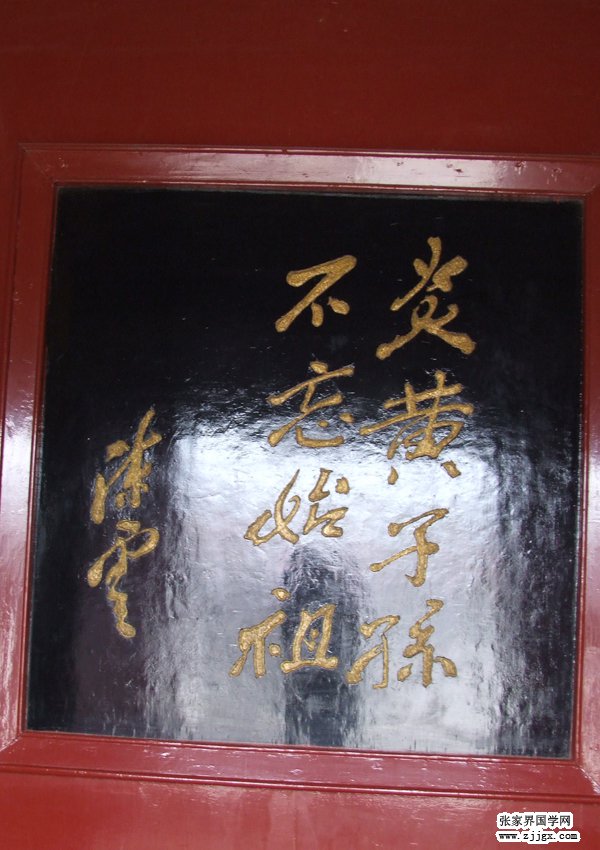 炎黄子孙
不忘始祖
陈云
张家界国学网
www.zjjgx.com